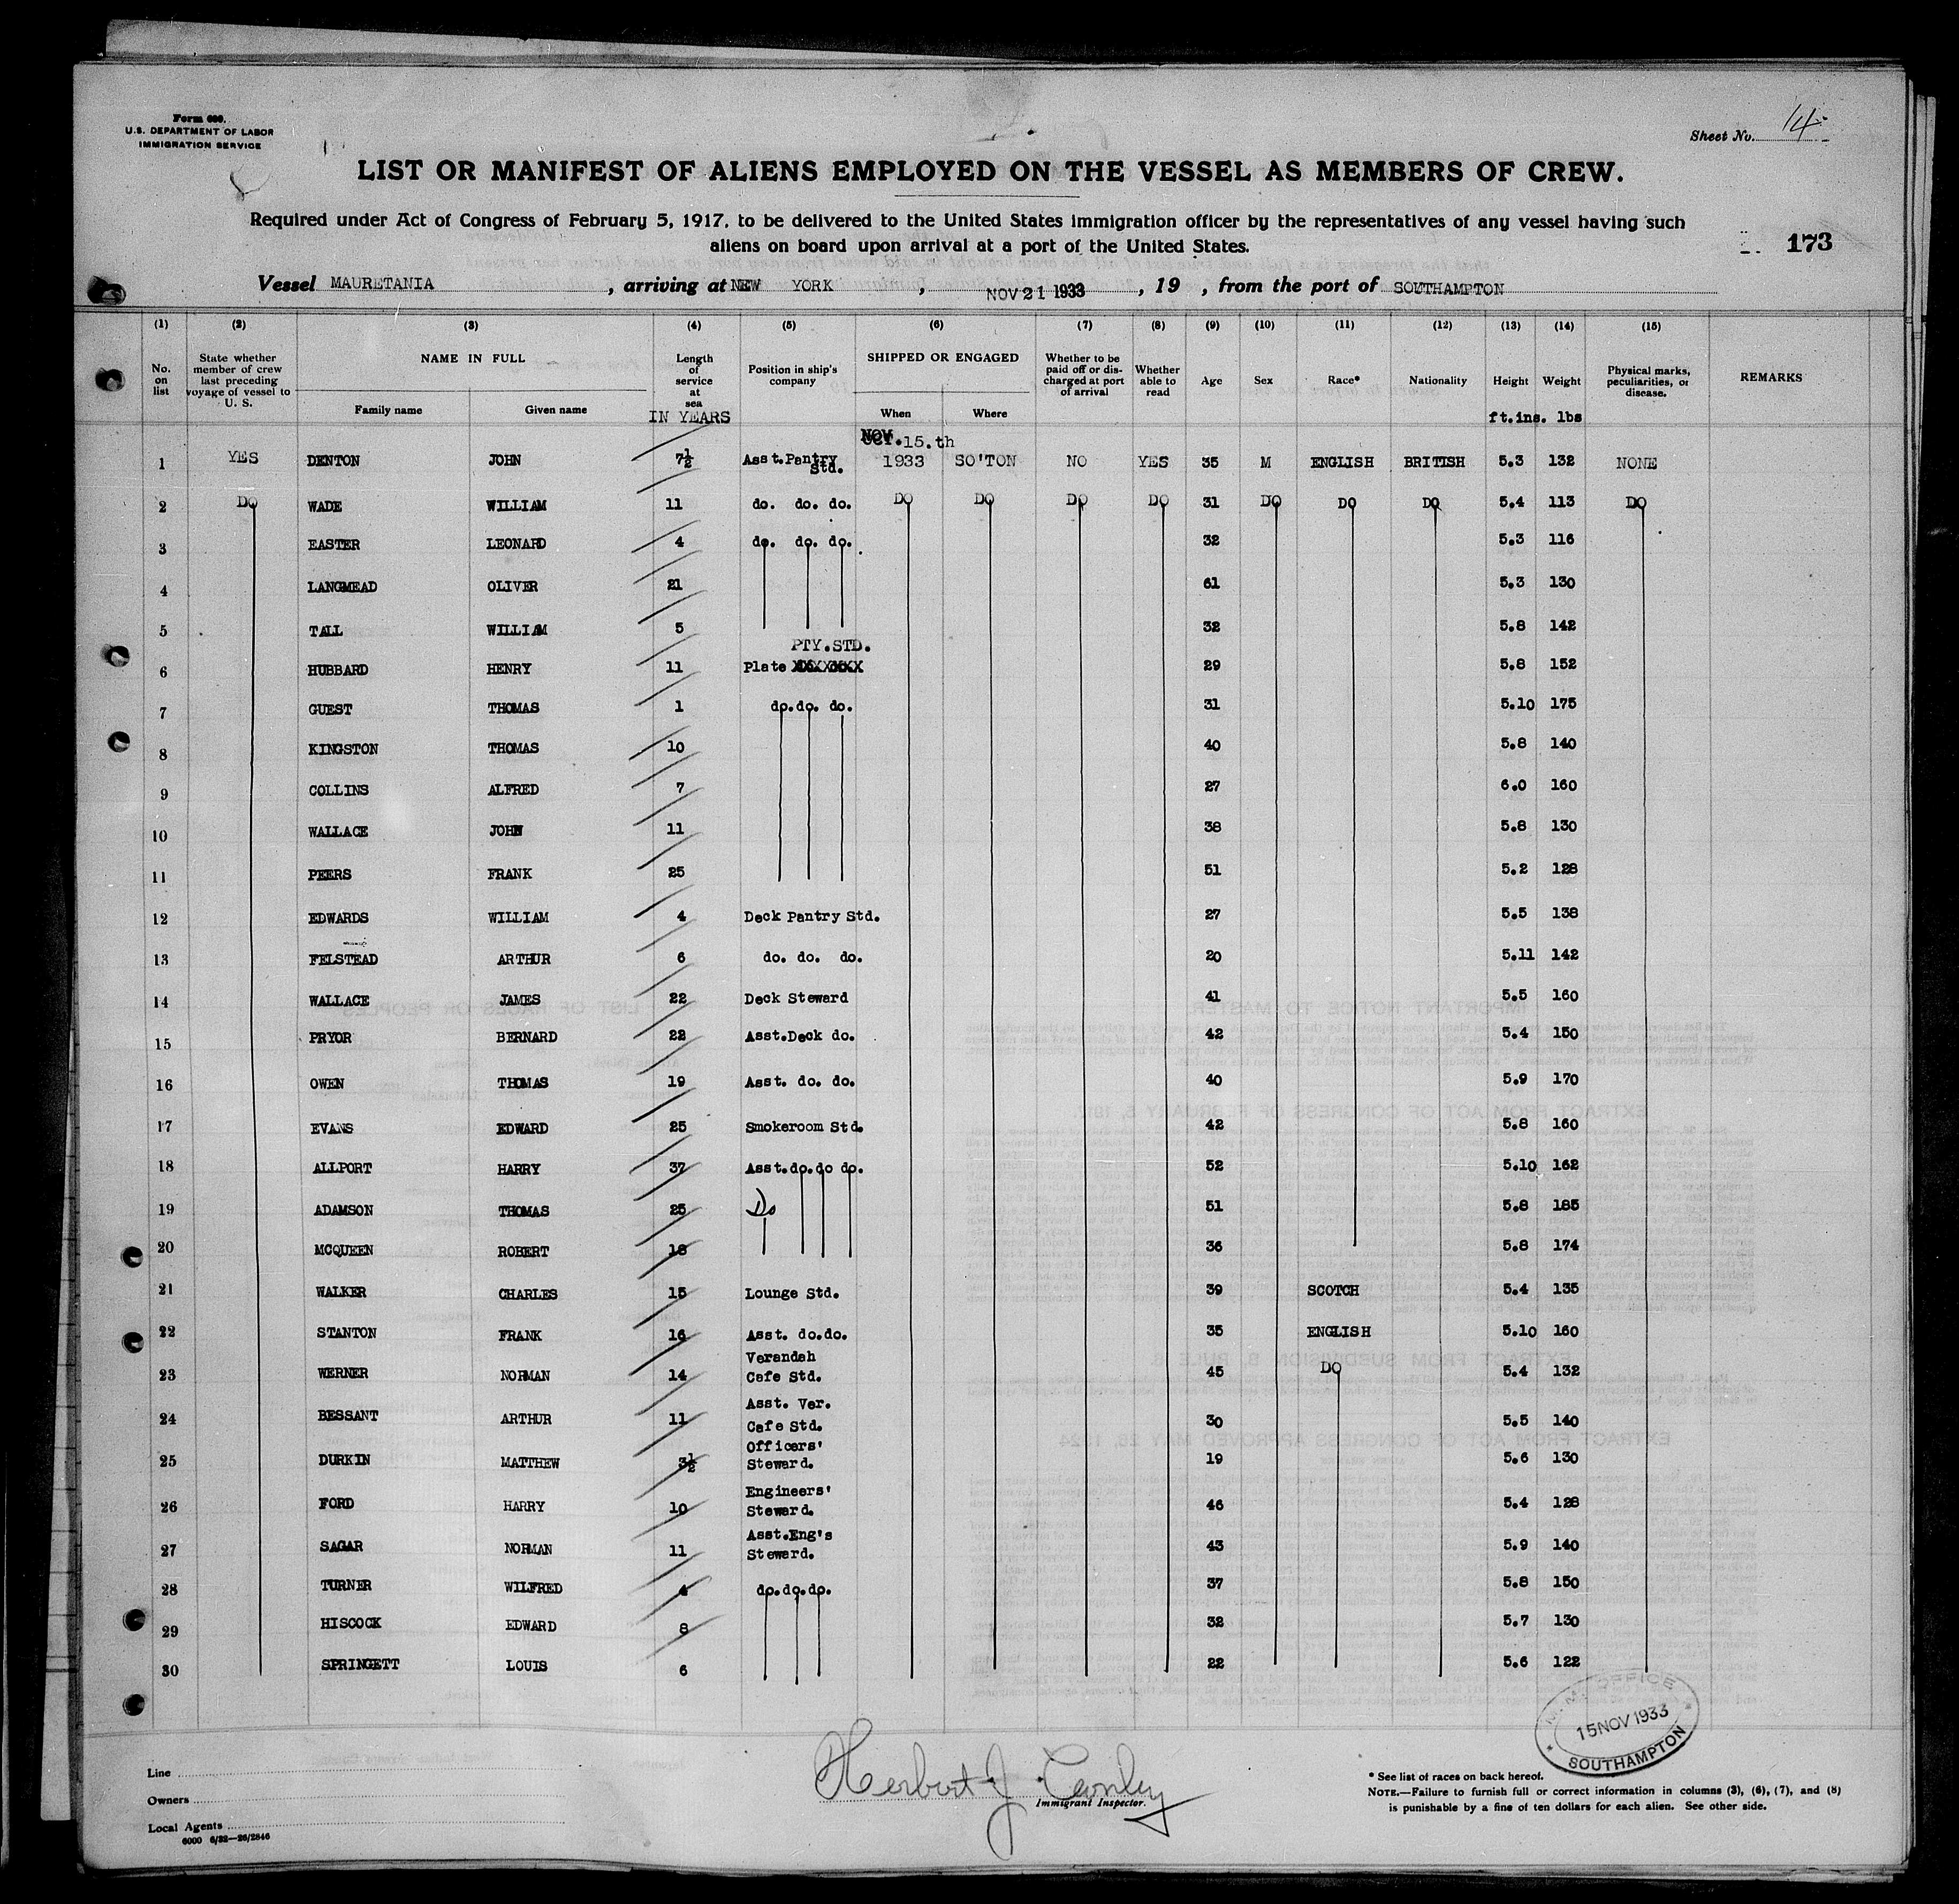 Form 680.
U.S. DEPARTMENT OF LABOR
IMMIGRATION SERVICE
Sheet No. 14
LIST OR MANIFEST OF ALIENS EMPLOYED ON THE VESSEL AS MEMBERS OF CREW.
Required under Act of Congress of February 5, 1917, to be delivered to the United States immigration officer by the representatives of any vessel having such
aliens on board upon arrival at a port of the United States.
173
Vessel MAURETANIA , arriving at NEW YORK , NOV 21 1933 , 19 , from the port of SOUTHAMPTON
(1) (2) (3) (4) (5) (6) (7) (8) (9) (10) (11) (12) (13) (14) (15)
No. on list State whether member of crew last preceding voyage of vessel to U. S. NAME IN FULL Family name Given name Length of service at sea IN YEARS Position in ship's company SHIPPED OR ENGAGED When Where Whether to be paid off or discharged at port of arrival Whether able to read Age Sex Race* Nationality Height ft.ins. Weight lbs Physical marks, peculiarities, or disease. REMARKS
NOV. 15.th
1 YES DENTON JOHN 7½ Asst.Pantry Std. 1933 SO'TON NO YES 35 M ENGLISH BRITISH 5.3 132 NONE
2 DO WADE WILLIAM 11 do. do. do. DO DO DO DO 31 DO DO DO 5.4 113 DO
3 EASTER LEONARD 4 do. do. do. 32 5.3 116
4 LANGMEAD OLIVER 21 61 5.3 130
5 TALL WILLIAM 5 32 5.8 142
6 HUBBARD HENRY 11 Plate PTY.STD. 29 5.8 152
7 GUEST THOMAS 1 do.do. do. 31 5.10 175
8 KINGSTON THOMAS 10 40 5.8 140
9 COLLINS ALFRED 7 27 6.0 160
10 WALLACE JOHN 11 38 5.8 130
11 PEERS FRANK 25 51 5.2 128
12 EDWARDS WILLIAM 4 Deck Pantry Std. 27 5.5 138
13 FELSTEAD ARTHUR 6 do. do. do. 20 5.11 142
14 WALLACE JAMES 22 Deck Steward 41 5.5 160
15 PRYOR BERNARD 22 Asst.Deck do. 42 5.4 150
16 OWEN THOMAS 19 Asst. do. do. 40 5.9 170
17 EVANS EDWARD 25 Smokeroom Std. 42 5.8 160
18 ALLPORT HARRY 37 Asst.do.do do. 52 5.10 162
19 ADAMSON THOMAS 25 Do 51 5.8 185
20 MCQUEEN ROBERT 18 36 5.8 174
21 WALKER CHARLES 15 Lounge Std. 39 SCOTCH 5.4 135
22 STANTON FRANK 16 Asst. do.do. 35 ENGLISH 5.10 160
23 WERNER NORMAN 14 Verandah Cafe Std. 45 DO 5.4 132
24 BESSANT ARTHUR 11 Asst. Ver. Cafe Std. 30 5.5 140
25 DURKIN MATTHEW 3½ Officers' Steward. 19 5.6 130
26 FORD HARRY 10 Engineers' Steward. 46 5.4 128
27 SAGAR NORMAN 11 Asst.Eng's Steward. 43 5.9 140
28 TURNER WILFRED 4 do.do.do. 37 5.8 150
29 HISCOCK EDWARD 8 32 5.7 130
30 SPRINGETT LOUIS 6 22 5.6 122
OFFICE
15 NOV 1933
SOUTHAMPTON
Line
Owners
Local Agents
6000 6/32—26/2846
Herbert J
Immigrant Inspector.
* See list of races on back hereof.
NOTE.—Failure to furnish full or correct information in columns (3), (6), (7), and (8)
is punishable by a fine of ten dollars for each alien. See other side.